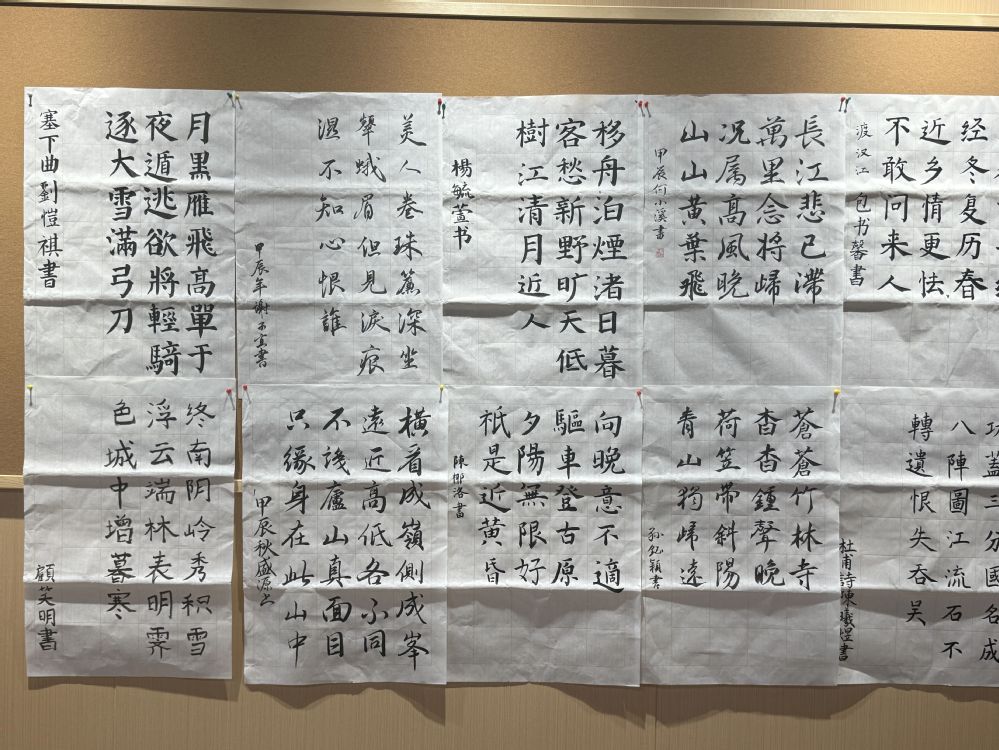 月黑雁飛高單于
夜遁逃欲將輕騎
逐大雪滿弓刀
塞下曲劉愷祺書
美人卷珠簾深坐
顰蛾眉但見淚痕
濕不知心恨誰
甲辰年謝宜書
移舟泊煙渚日暮
客愁新野旷天低
樹江清月近人
楊毓萱书
長江悲已滯
萬里念將歸
况属高風晚
山山黄葉飛
甲辰何小溪書
经冬复历春
近乡情更怯
不敢问来人
渡汉江 包书馨書
终南阴岭秀积雪
浮云端林表明霁
色城中增暮寒
顧笑明書
橫看成嶺側成峯
遠近高低各不同
不識廬山真面目
只緣身在此山中
甲辰秋盛源书
向晚意不適
驅車登古原
夕陽無限好
祇是近黄昏
陳洛書
蒼蒼竹林寺
杳杳鍾聲晚
荷笠帶斜陽
青山獨歸遠
孙颖書
功蓋三分國名成
八陣圖江流石不
轉遺恨失吞吴
杜甫詩陳曦煜書